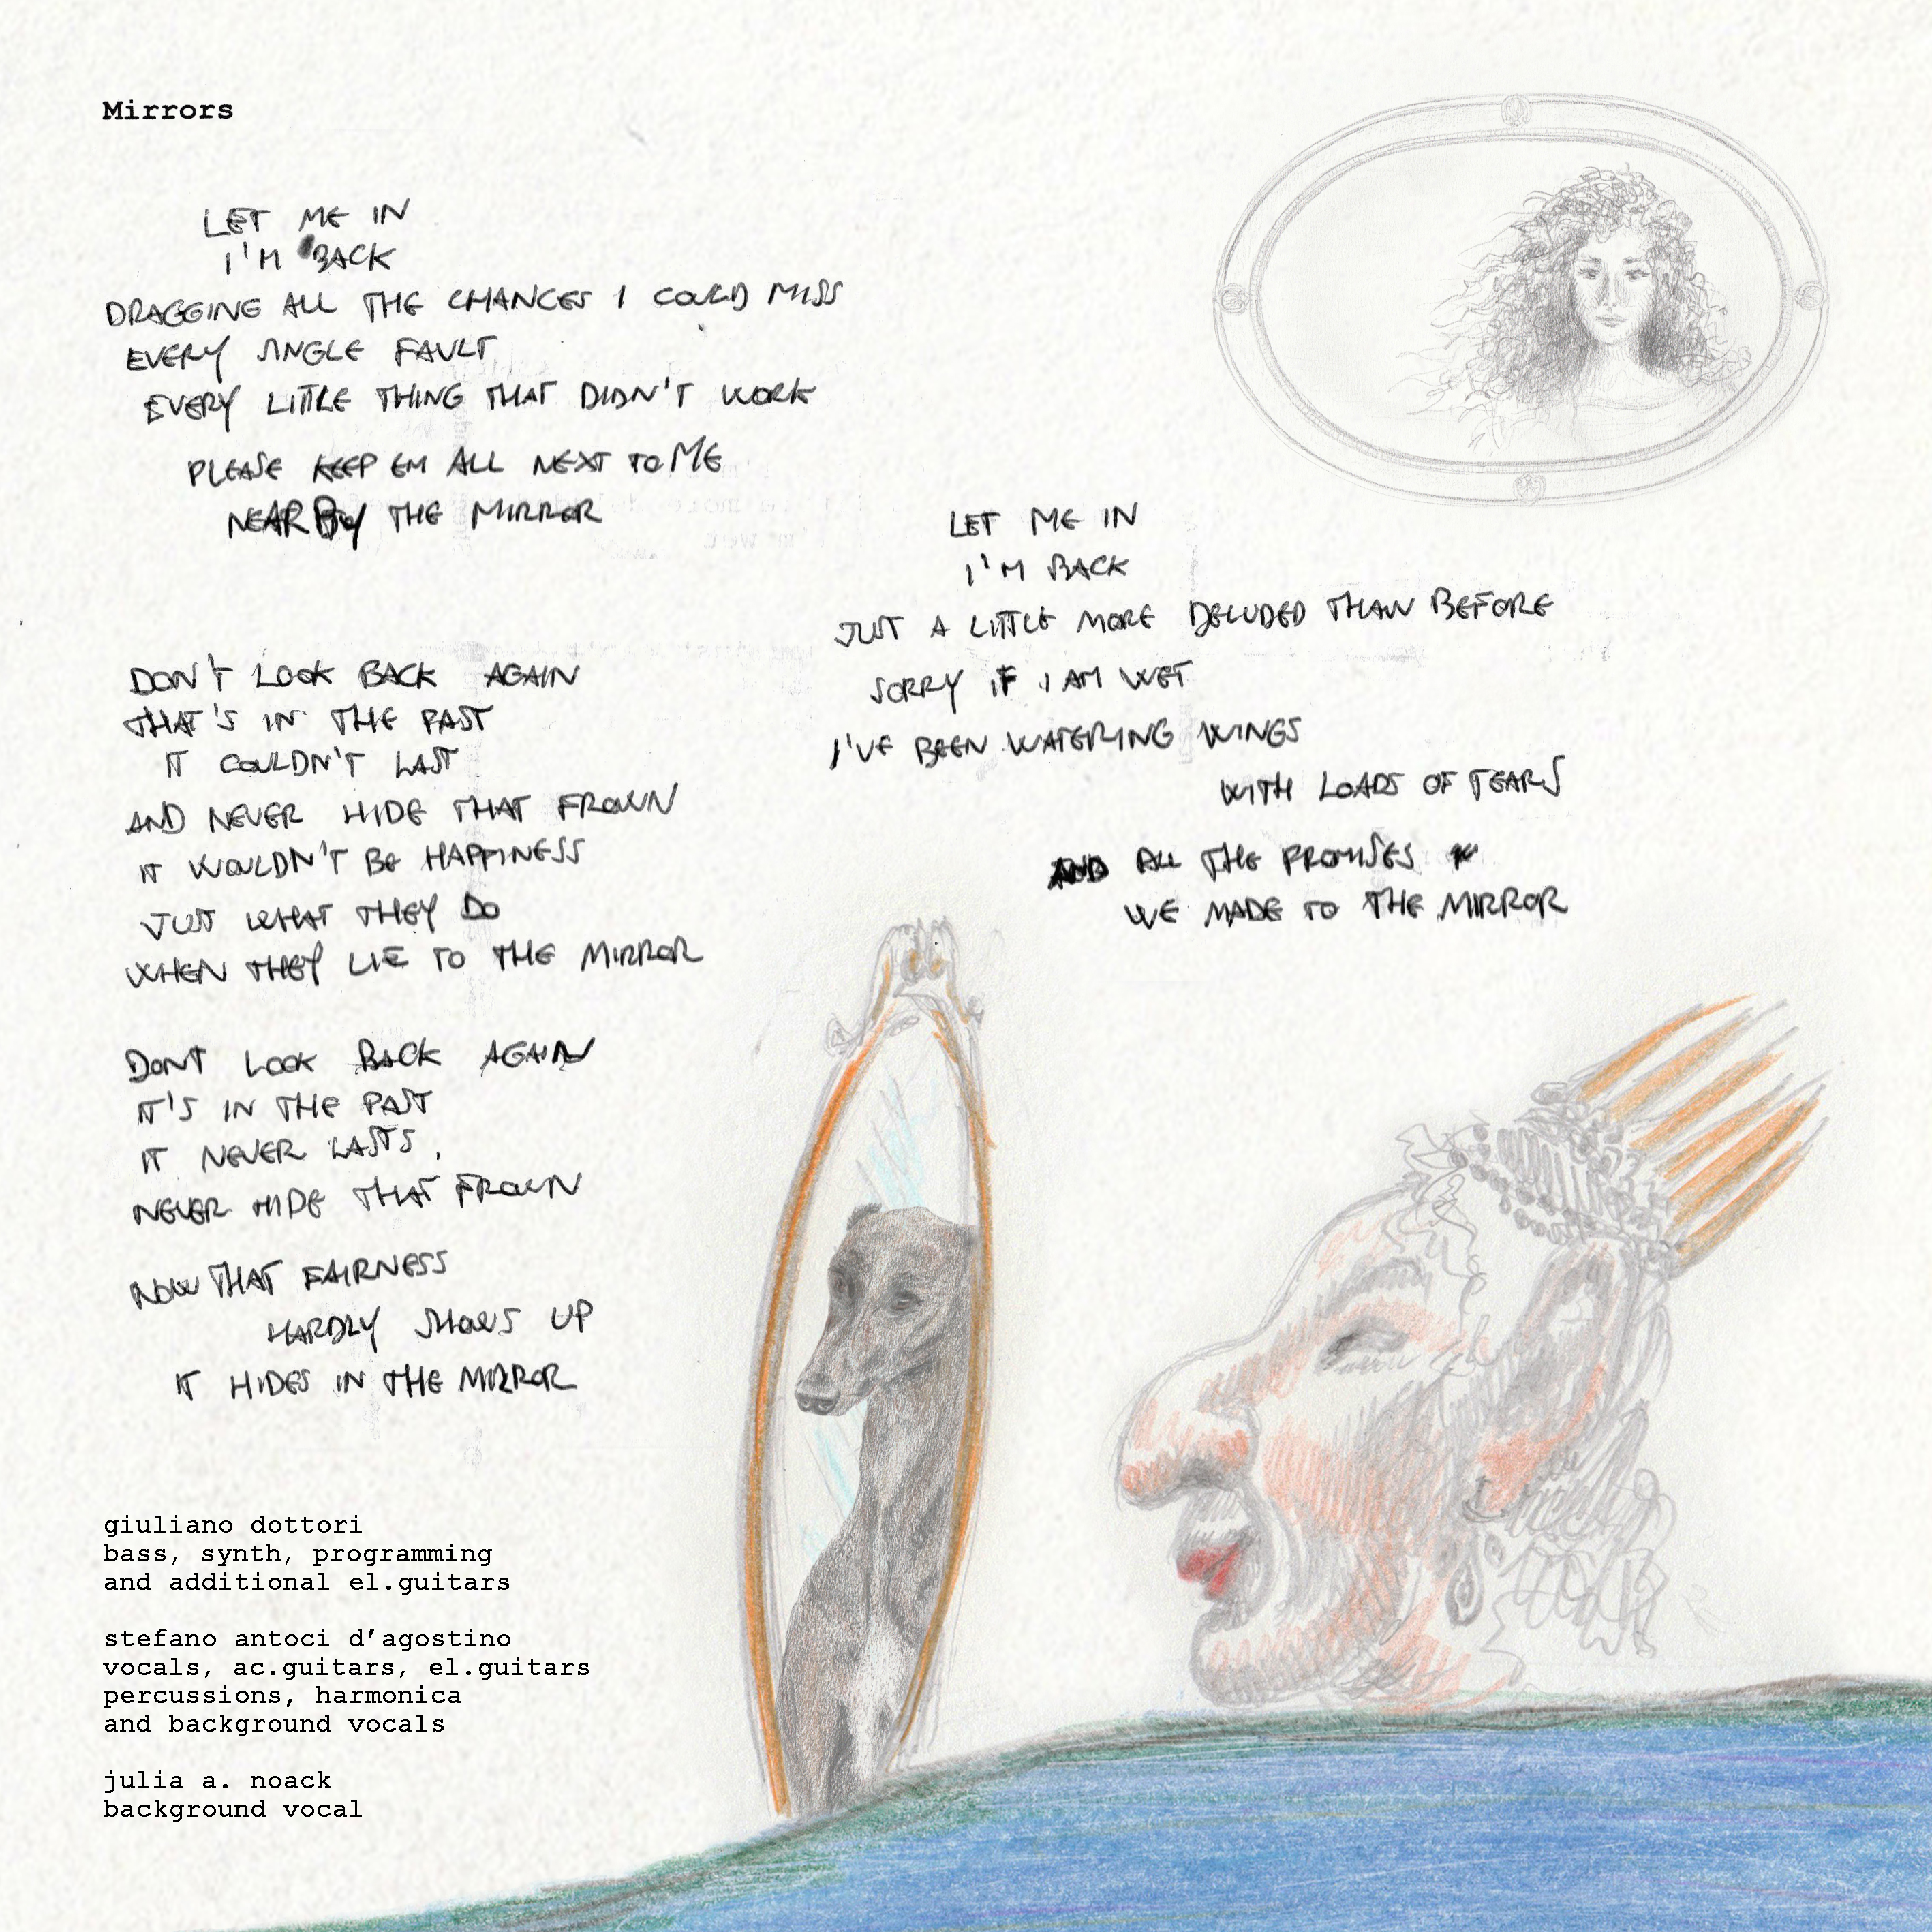 Mirrors
LET ME IN
I'M BACK
DRAGGING ALL THE CHANCES I COULD MISS
EVERY SINGLE FAULT
EVERY LITTLE THING THAT DIDN'T WORK
PLEASE KEEP EM ALL NEXT TO ME
NEARBY THE MIRROR
DON'T LOOK BACK AGAIN
THAT'S IN THE PAST
IT COULDN'T LAST
AND NEVER HIDE THAT FROWN
IT WOULDN'T BE HAPPINESS
JUST WHAT THEY DO
WHEN THEY LIE TO THE MIRROR
DONT LOOK BACK AGAIN
IT'S IN THE PAST
IT NEVER LASTS,
NEVER HIDE THAT FROWN
NOW THAT FAIRNESS
HARDLY SHOWS UP
IT HIDES IN THE MIRROR
LET ME IN
I'M BACK
JUST A LITTLE MORE DELUDED THAN BEFORE
SORRY IF I AM WET
I'VE BEEN WATERING WINGS
WITH LOADS OF TEARS
AND ALL THE PROMISES
WE MADE TO THE MIRROR
giuliano dottori
bass, synth, programming
and additional el.guitars
stefano antoci d'agostino
vocals, ac.guitars, el.guitars
percussions, harmonica
and background vocals
julia a. noack
background vocal